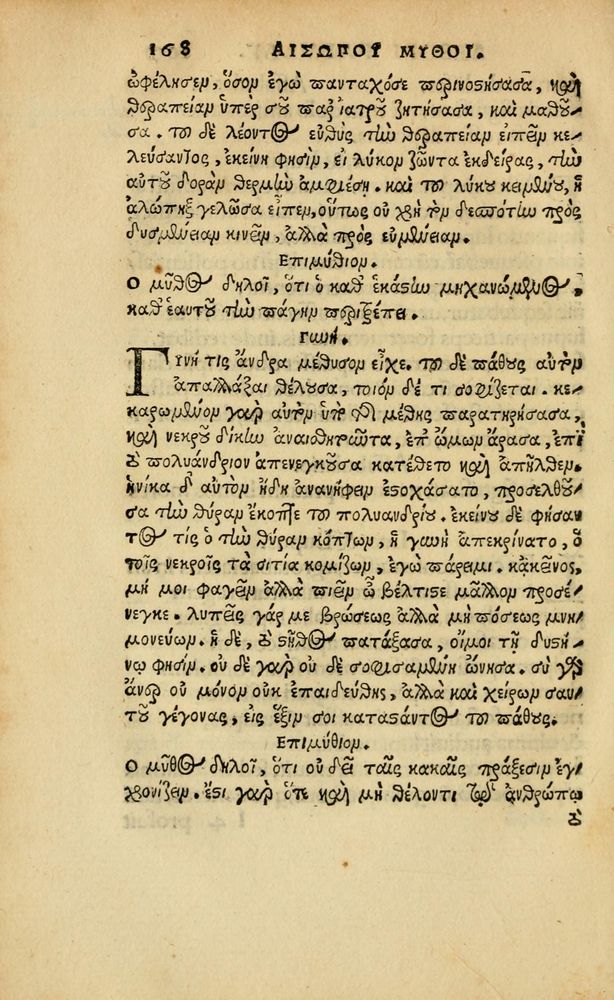 168 ΑΙΣΩΠΟΥ ΜΥΘΟΙ.
ὠφέλησεν, ὅσον ἐγὼ πανταχόσε περινοστήσασα, καὶ
θεραπείαν ὑπὲρ σοῦ παρ' ἰατροῦ ζητήσασα, καὶ μαθοῦ-
σα. τοῦ δὲ λέοντος εὐθὺς τὴν θεραπείαν εἰπεῖν κε-
λεύσαντος, ἐκείνη φησὶν, εἰ λύκον ζῶντα ἐκδείρας, τὴν
αὐτοῦ δορὰν θερμὴν ἀμφιέσῃ. καὶ τοῦ λύκου κειμένου, ἡ
ἀλώπηξ γελῶσα εἶπεν, οὕτως οὐ χρὴ τὸν δεσπότην πρὸς
δυσμένειαν κινεῖν, ἀλλὰ πρὸς εὐμένειαν.
Επιμύθιον.
Ο μῦθος δηλοῖ, ὅτι ὁ καθ' ἑκάστην μηχανώμενος,
καθ' ἑαυτοῦ τὴν πάγην περιτρέπει.
Γυνή.
Γυνή τις ἄνδρα μέθυσον εἶχε. τοῦ δὲ πάθους αὐτὸν
ἀπαλλάξαι θέλουσα, τοιόν δέ τι σοφίζεται. κε-
καρωμένον γὰρ αὐτὸν ὑπὸ τῆς μέθης παρατηρήσασα,
καὶ νεκροῦ δίκην ἀναισθητοῦντα, ἐπ' ὤμων ἄρασα, ἐπὶ
τὸ πολυάνδριον ἀπενεγκοῦσα κατέθετο καὶ ἀπῆλθεν.
ἡνίκα δ' αὐτὸν ἤδη ἀνανήφειν ἐστοχάσατο, προσελθοῦ-
σα τὴν θύραν ἔκοπτε τοῦ πολυανδρίου. ἐκείνου δὲ φήσαν
τος τίς ὁ τὴν θύραν κόπτων, ἡ γυνὴ ἀπεκρίνατο, ὁ
τοῖς νεκροῖς τὰ σιτία κομίζων, ἐγὼ πάρειμι. κἀκεῖνος,
μή μοι φαγεῖν ἀλλὰ πιεῖν ὦ βέλτιστε μᾶλλον προσέ-
νεγκε. λυπεῖς γάρ με βρώσεως ἀλλὰ μὴ πόσεως μνη-
μονεύων. ἡ δὲ, τὸ στῆθος πατάξασα, οἴμοι τῇ δυστή-
νῳ φησίν. οὐδὲ γὰρ οὐδὲ σοφισαμένη ὤνησα. σὺ γὰρ
ἄνερ οὐ μόνον οὐκ ἐπαιδεύθης, ἀλλὰ καὶ χείρων σαυ-
τοῦ γέγονας, εἰς ἕξιν σοι καταστάντος τοῦ πάθους.
Επιμύθιον.
Ο μῦθος δηλοῖ, ὅτι οὐ δεῖ ταῖς κακαῖς πράξεσιν ἐγ-
χρονίζειν. ἔστι γὰρ ὅτε καὶ μὴ θέλοντι τῷ ἀνθρώπῳ
τὸ